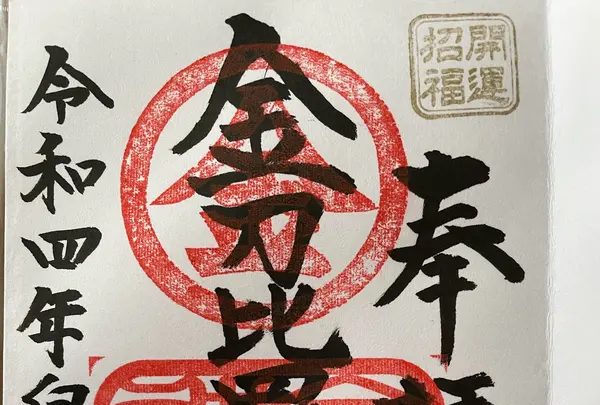 開運
招福
奉
金刀比
令和四年